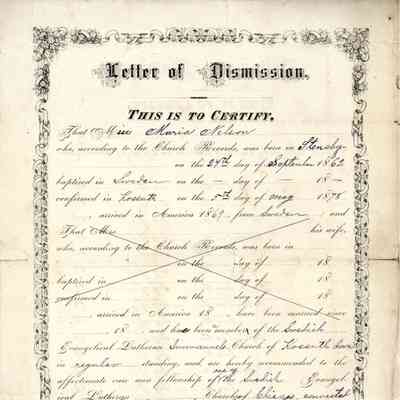 Letter of Dismission,
THIS IS TO CERTIFY,
That Miss Maria Nelson
who, according to the Church Records, was born in Stensby
on the 24th day of September 1862
baptized in Sweden on the — day of — 18 —
confirmed in Kossuth on the 5th day of May 1878
, arrived in America 1869, from Sweden, and
That Mrs. his wife,
who, according to the Church Records, was born in
on the day of 18
baptized in on the day of 18
confirmed in on the day of 18
, arrived in America 18 , have been married since
18 , and has been member of the Swedish
Evangelical Lutheran Immanuels Church of Kossuth Iowa
in regular standing, and are hereby recommended to the
affectionate care and fellowship of the Swedish Evangel
ical Lutheran Church of Chicago